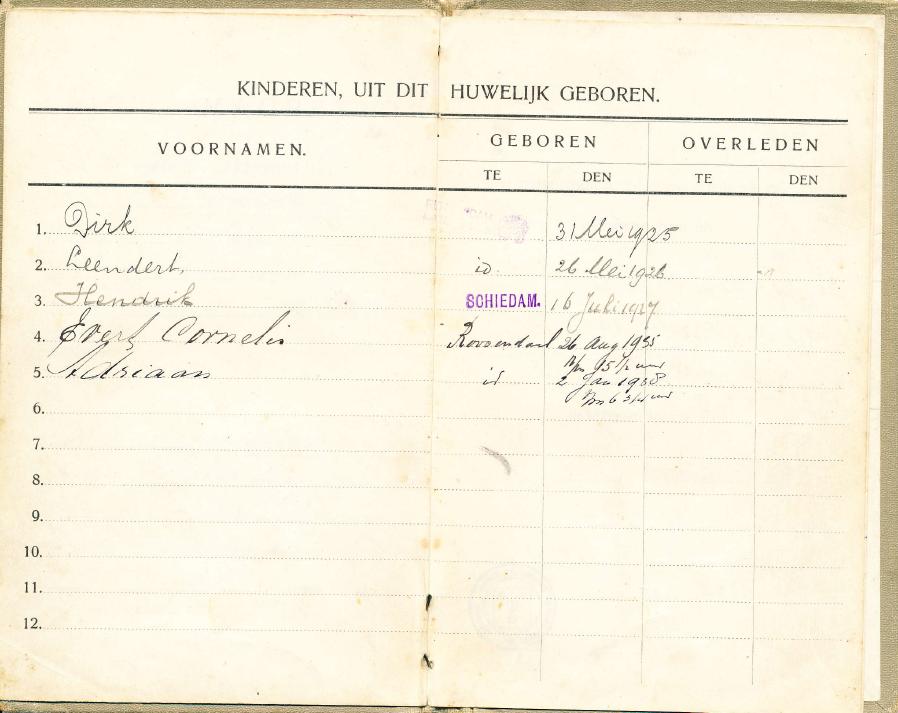 KINDEREN, UIT DIT HUWELIJK GEBOREN.
VOORNAMEN. GEBOREN OVERLEDEN
TE DEN TE DEN
1. Dirk 31 Mei 1925
2. Leendert, id. 26 Mei 1926
3. Hendrik SCHIEDAM. 16 Juli 1927
4. Evert Cornelis Roosendaal 26 Aug 1935
uur
5. Adriaan id 2 Jan 1938
6 3/4 uur
6.
7.
8.
9.
10.
11.
12.